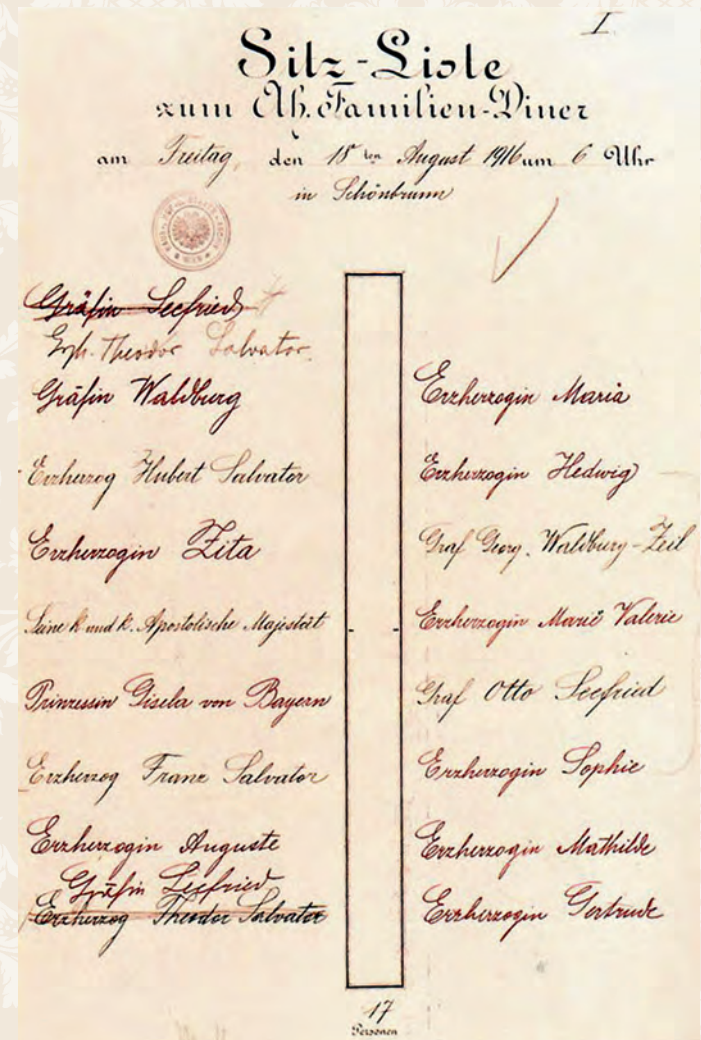 I
Sitz-Liste
zum Ah. Familien-Diner
am Freitag, den 18ten August 1916 um 6 Uhr
in Schönbrunn
Gräfin Seefried
Erzh. Theodor Salvator.
Gräfin Waldburg
Erzherzog Hubert Salvator
Erzherzogin Zita
Seine k. und k. Apostolische Majestät
Prinzessin Gisela von Bayern
Erzherzog Franz Salvator
Erzherzogin Auguste
Gräfin Seefried
Erzherzog Theodor Salvator
Erzherzogin Maria
Erzherzogin Hedwig
Graf Georg. Waldburg-Zeil
Erzherzogin Marie Valerie
Graf Otto Seefried
Erzherzogin Sophie
Erzherzogin Mathilde
Erzherzogin Gertrude
17
Personen